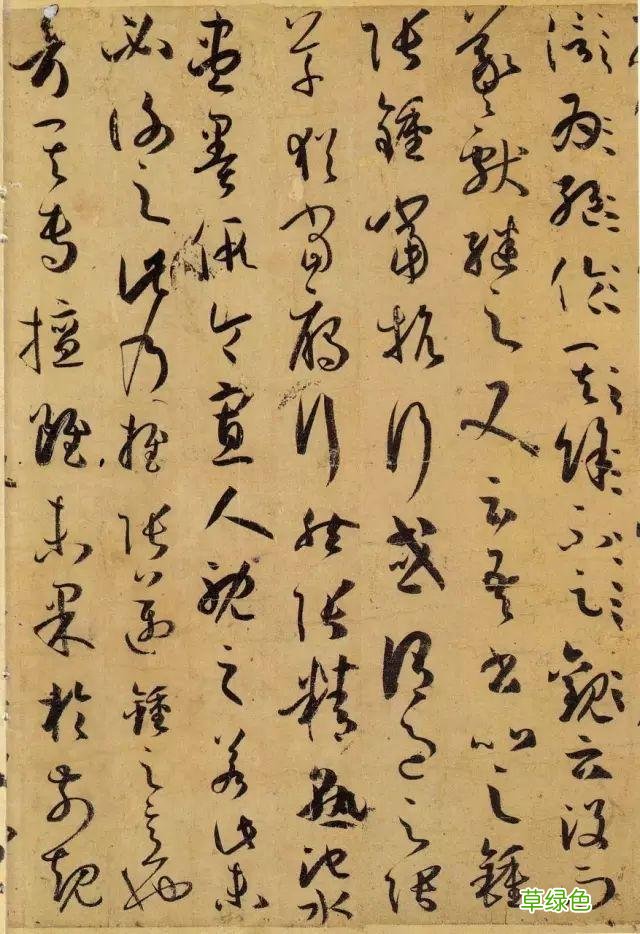 為絕倫其餘不足觀云沒而
羲獻繼之又云吾書比之鍾
張鍾當抗行或謂過之張
草猶當雁行然張精熟池水
盡墨假令寡人耽之若此未
必謝之此乃推張邁鍾之意也
考其專擅雖未果於前規
草绿色